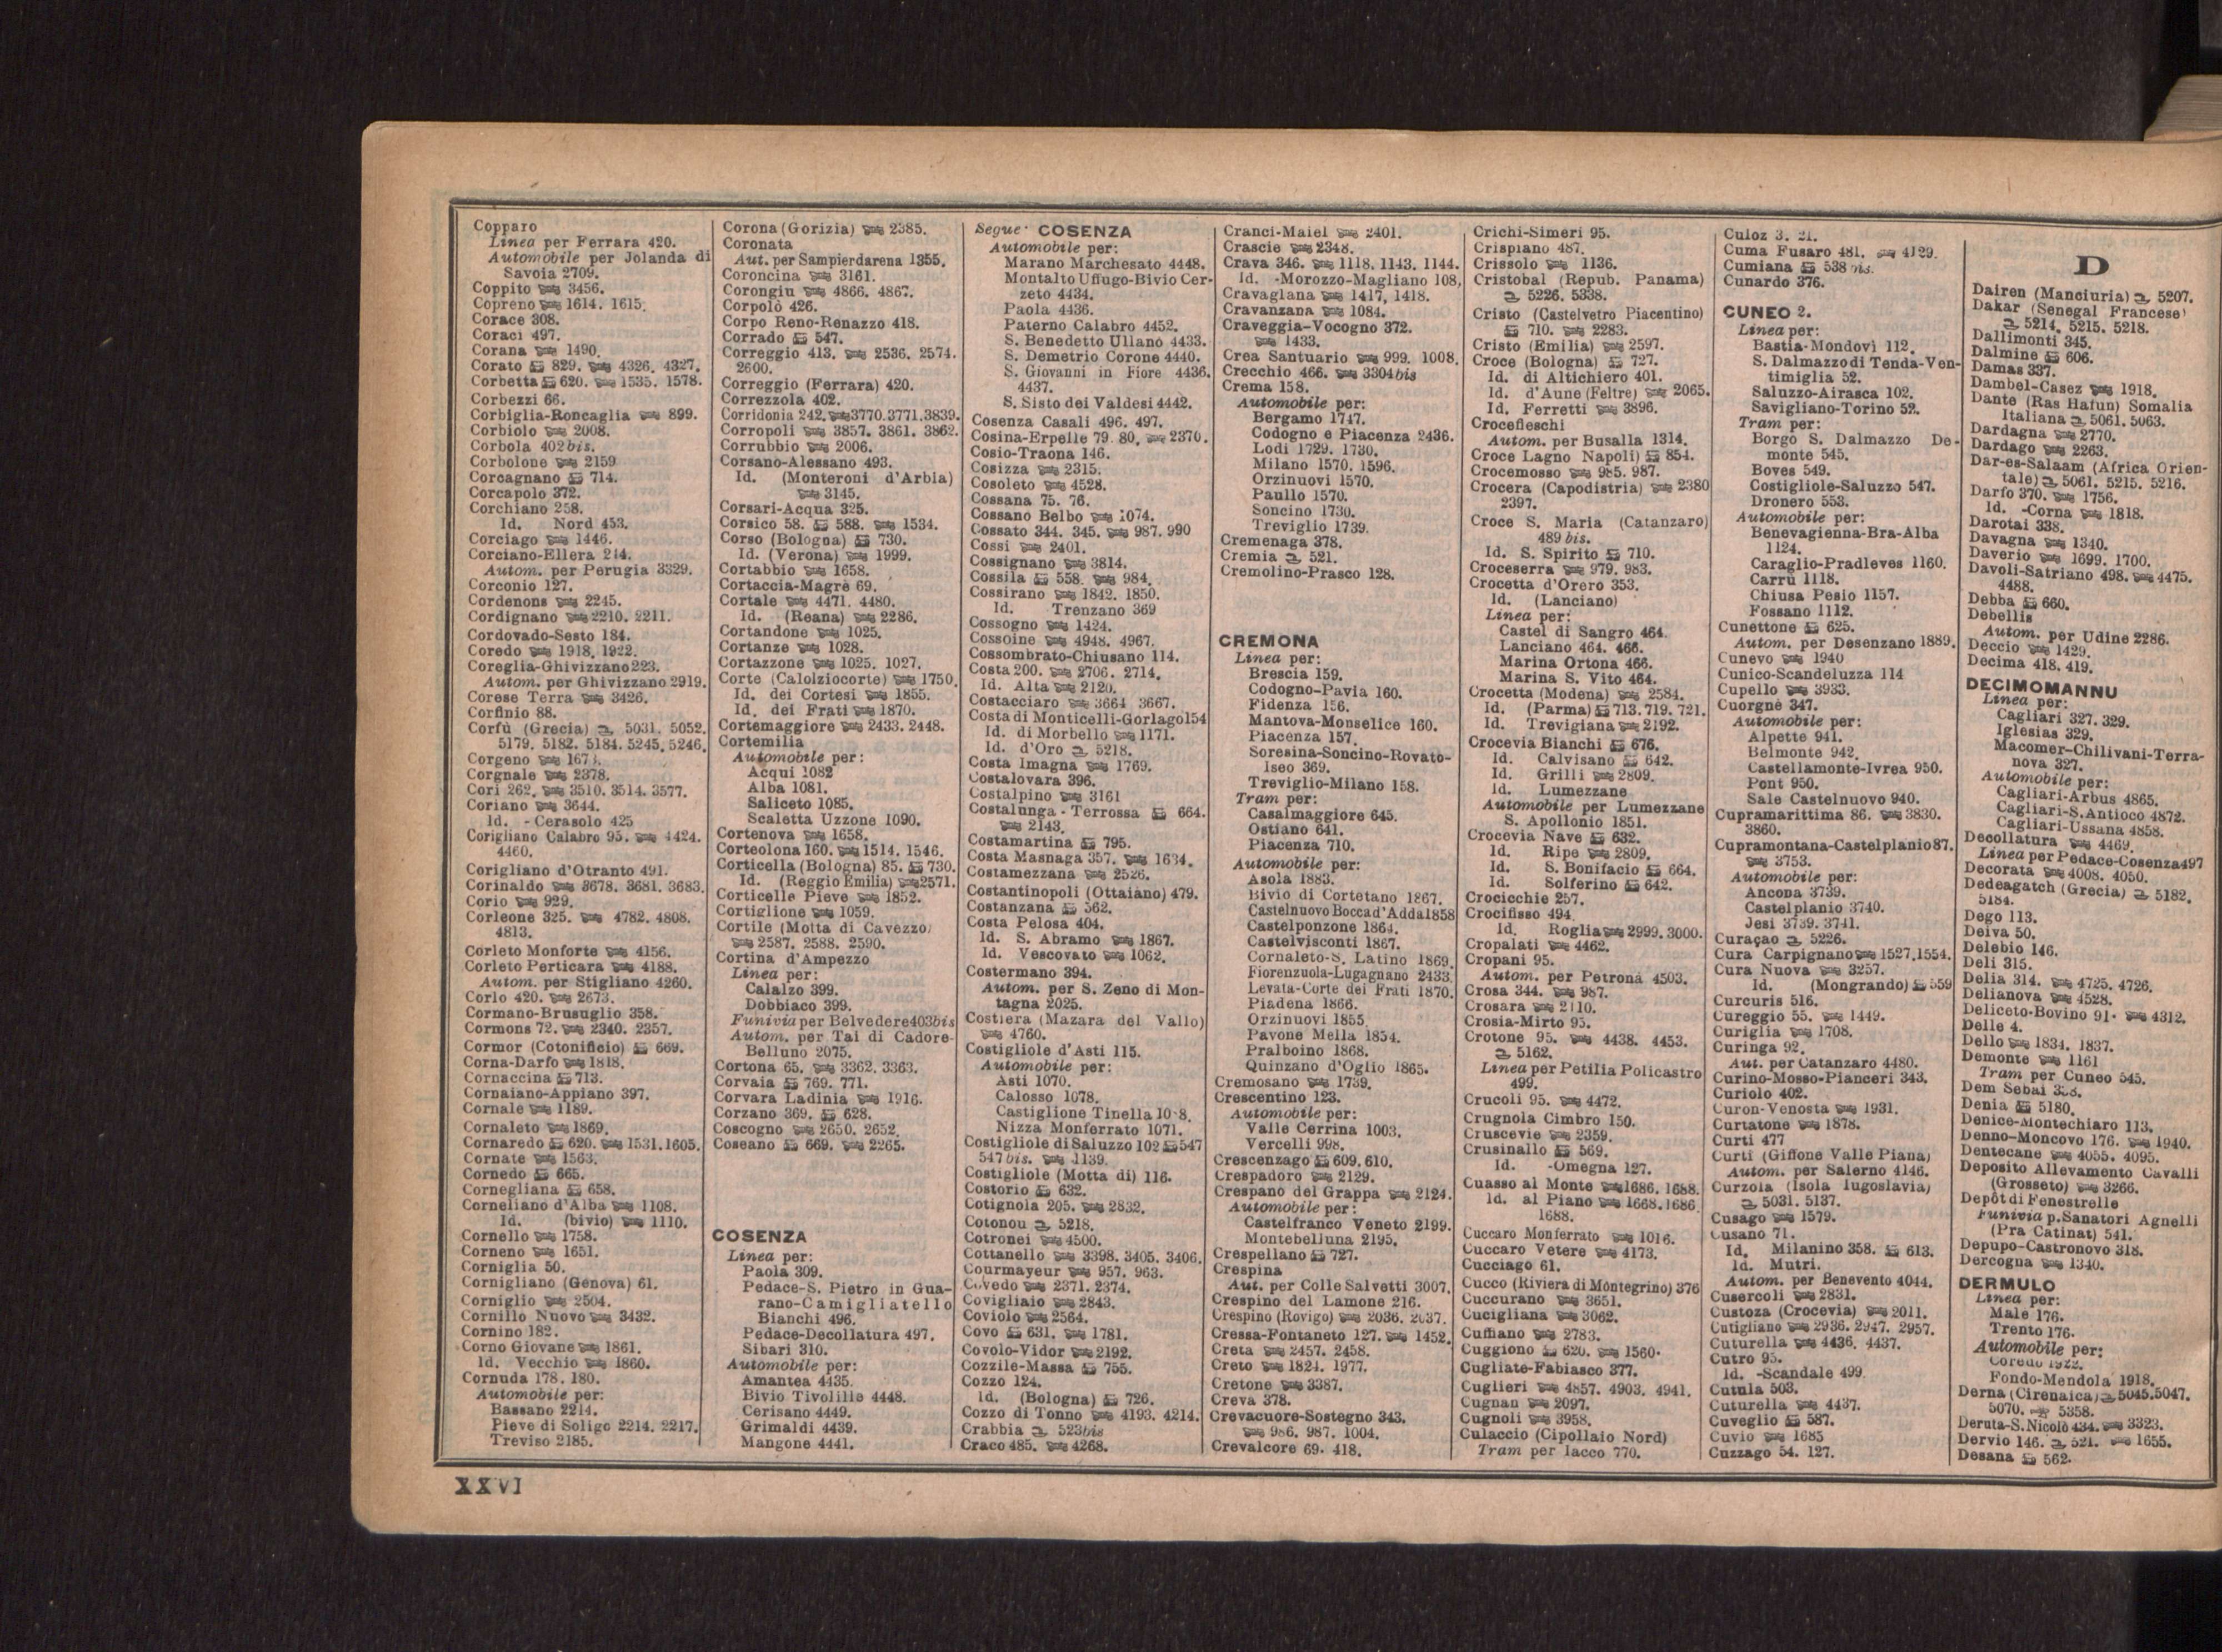 Copparo
Linea per Ferrara 420.
Automobile per Jolanda di
Savoia 2709.
Coppito 3456.
Copreno 1614. 1615.
Corace 308.
Coraci 497.
Corana 1490.
Corato 829. 4326. 4327.
Corbetta 620. 1535. 1578.
Corbezzi 66.
Corbiglia-Roncaglia 899.
Corbiolo 2008.
Corbola 402bis.
Corbolone 2159
Corcagnano 714.
Corcapolo 372.
Corchiano 258.
Id. Nord 453.
Corciago 1446.
Corciano-Ellera 244.
Autom. per Perugia 3329.
Corconio 127.
Cordenons 2245.
Cordignano 2210. 2211.
Cordovado-Sesto 184.
Coredo 1918. 1922.
Coreglia-Ghivizzano 223.
Autom. per Ghivizzano 2919.
Corese Terra 3426.
Corfinio 88.
Corfù (Grecia) 5031. 5052.
5179. 5182. 5184. 5245. 5246.
Corgeno
Corgnale 2378.
Cori 262. 3510. 3514. 3577.
Coriano 3644.
Id. - Cerasolo 425
Corigliano Calabro 95. 4424.
4460.
Corigliano d'Otranto 491.
Corinaldo 3678. 3681. 3683.
Corio 929.
Corleone 325. 4782. 4808.
4813.
Corleto Monforte 4156.
Corleto Perticara 4188.
Autom. per Stigliano 4260.
Corlo 420. 2673.
Cormano-Brusuglio 358.
Cormons 72. 2340. 2357.
Cormor (Cotonificio) 669.
Corna-Darfo 1818.
Cornaccina 713.
Cornaiano-Appiano 397.
Cornale 1189.
Cornaleto 1869.
Cornaredo 620. 1531. 1605.
Cornate 1563.
Cornedo 665.
Cornegliana 658.
Corneliano d'Alba 1108.
Id. (bivio) 1110.
Cornello 1758.
Corneno 1651.
Corniglia 50.
Cornigliano (Genova) 61.
Corniglio 2504.
Cornillo Nuovo 3432.
Cornino 182.
Corno Giovane 1861.
Id. Vecchio 1860.
Cornuda 178. 180.
Automobile per:
Bassano 2214.
Pieve di Soligo 2214. 2217.
Treviso 2185.
Corona (Gorizia) 2385.
Coronata
Aut. per Sampierdarena 1355.
Coroncina 3161.
Corongiu 4866. 4867.
Corpolò 426.
Corpo Reno-Renazzo 418.
Corrado 547.
Correggio 413. 2536. 2574.
2600.
Correggio (Ferrara) 420.
Correzzola 402.
Corridonia 242. 3770. 3771. 3839.
Corropoli 3857. 3861. 3862.
Corrubbio 2006.
Corsano-Alessano 493.
Id. (Monteroni d'Arbia)
3145.
Corsari-Acqua 325.
Corsico 58. 588. 1534.
Corso (Bologna) 730.
Id. (Verona) 1999.
Cortabbio 1658.
Cortaccia-Magrè 69.
Cortale 4471. 4480.
Id. (Reana) 2286.
Cortandone 1025.
Cortanze 1028.
Cortazzone 1025. 1027.
Corte (Calolziocorte) 1750.
Id. dei Cortesi 1855.
Id. dei Frati 1870.
Cortemaggiore 2433. 2448.
Cortemilia
Automobile per:
Acqui 1082
Alba 1081.
Saliceto 1085.
Scaletta Uzzone 1090.
Cortenova 1658.
Corteolona 160. 1514. 1546.
Corticella (Bologna) 85. 730.
Id. (Reggio Emilia) 2571.
Corticelle Pieve 1852.
Cortiglione 1059.
Cortile (Motta di Cavezzo)
2587. 2588. 2590.
Cortina d'Ampezzo
Linea per:
Calalzo 399.
Dobbiaco 399.
Funivia per Belvedere 403bis
Autom. per Tai di Cadore-
Belluno 2075.
Cortona 65. 3362. 3363.
Corvaia 769. 771.
Corvara Ladinia 1916.
Corzano 369. 628.
Coscogno 2650. 2652.
Coseano 669. 2265.
COSENZA
Linea per:
Paola 309.
Pedace-S. Pietro in Gua-
rano-Camigliatello
Bianchi 496.
Pedace-Decollatura 497.
Sibari 310.
Automobile per:
Amantea 4435.
Bivio Tivolille 4448.
Cerisano 4449.
Grimaldi 4439.
Mangone 4441.
Segue COSENZA
Automobile per:
Marano Marchesato 4448.
Montalto Uffugo-Bivio Cer-
zeto 4434.
Paola 4436.
Paterno Calabro 4452.
S. Benedetto Ullano 4433.
S. Demetrio Corone 4440.
S. Giovanni in Fiore 4436.
4437.
S. Sisto dei Valdesi 4442.
Cosenza Casali 496. 497.
Cosina-Erpelle 79. 80. 2370.
Cosio-Traona 146.
Cosizza 2315.
Cosoleto 4528.
Cossana 75. 76.
Cossano Belbo 1074.
Cossato 344. 345. 987. 990
Cossi 2401.
Cossignano 3814.
Cossila 558. 984.
Cossirano 1842. 1850.
Id. Trenzano 369
Cossogno 1424.
Cossoine 4948. 4967.
Cossombrato-Chiusano 114.
Costa 200. 2706. 2714.
Id. Alta 2120.
Costacciaro 3664 3667.
Costa di Monticelli-Gorlago 154
Id. di Morbello 1171.
Id. d'Oro 5218.
Costa Imagna 1769.
Costalovara 396.
Costalpino 3161
Costalunga - Terrossa 664.
2143.
Costamartina 795.
Costa Masnaga 357. 1634.
Costamezzana 2526.
Costantinopoli (Ottaiano) 479.
Costanzana 562.
Costa Pelosa 404.
Id. S. Abramo 1867.
Id. Vescovato 1062.
Costermano 394.
Autom. per S. Zeno di Mon-
tagna 2025.
Costiera (Mazara del Vallo)
4760.
Costigliole d'Asti 115.
Automobile per:
Asti 1070.
Calosso 1078.
Castiglione Tinella
Nizza Monferrato 1071.
Costigliole di Saluzzo 102 547
547bis. 1139.
Costigliole (Motta di) 116.
Costorio 632.
Cotignola 205. 2832.
Cotonou 5218.
Cotronei 4500.
Cottanello 3398. 3405. 3406.
Courmayeur 957. 963.
Covedo 2371. 2374.
Covigliaio 2843.
Coviolo 2564.
Covo 631. 1781.
Covolo-Vidor 2192.
Cozzile-Massa 755.
Cozzo 124.
Id. (Bologna) 726.
Cozzo di Tonno 4193. 4214.
Crabbia 523bis
Craco 485. 4268.
Cranci-Maiel 2401.
Crascie 2348.
Crava 346. 1118. 1143. 1144.
Id. -Morozzo-Magliano 108.
Cravagliana 1417. 1418.
Cravanzana 1084.
Craveggia-Vocogno 372.
1433.
Crea Santuario 999. 1008.
Crecchio 466. 3304bis
Crema 158.
Automobile per:
Bergamo 1747.
Codogno e Piacenza 2436.
Lodi 1729. 1730.
Milano 1570. 1596.
Orzinuovi 1570.
Paullo 1570.
Soncino 1730.
Treviglio 1739.
Cremenaga 378.
Cremia 521.
Cremolino-Prasco 128.
CREMONA
Linea per:
Brescia 159.
Codogno-Pavia 160.
Fidenza 156.
Mantova-Monselice 160.
Piacenza 157.
Soresina-Soncino-Rovato-
Iseo 369.
Treviglio-Milano 158.
Tram per:
Casalmaggiore 645.
Ostiano 641.
Piacenza 710.
Automobile per:
Asola 1883.
Bivio di Cortetano 1867.
Castelnuovo Bocca d'Adda 1858
Castelponzone 1864.
Castelvisconti 1867.
Cornaleto-S. Latino 1869.
Fiorenzuola-Lugagnano 2433.
Levata-Corte dei Frati 1870.
Piadena 1866.
Orzinuovi 1855.
Pavone Mella 1854.
Pralboino 1868.
Quinzano d'Oglio 1865.
Cremosano 1739.
Crescentino 123.
Automobile per:
Valle Cerrina 1003.
Vercelli 998.
Crescenzago 609. 610.
Crespadoro 2129.
Crespano del Grappa 2124.
Automobile per:
Castelfranco Veneto 2199.
Montebelluna 2195.
Crespellano 727.
Crespina
Aut. per Colle Salvetti 3007.
Crespino del Lamone 216.
Crespino (Rovigo) 2036. 2037.
Cressa-Fontaneto 127. 1452.
Creta 2457. 2458.
Creto 1824. 1977.
Cretone 3387.
Creva 378.
Crevacuore-Sostegno 343.
986. 987. 1004.
Crevalcore 69. 418.
Crichi-Simeri 95.
Crispiano 487.
Crissolo 1136.
Cristobal (Repub. Panama)
5226. 5338.
Cristo (Castelvetro Piacentino)
710. 2283.
Cristo (Emilia) 2597.
Croce (Bologna) 727.
Id. di Altichiero 401.
Id. d'Aune (Feltre) 2065.
Id. Ferretti 3896.
Crocefieschi
Autom. per Busalla 1314.
Croce Lagno Napoli) 854.
Crocemosso 985. 987.
Crocera (Capodistria) 2380
2397.
Croce S. Maria (Catanzaro)
489bis.
Id. S. Spirito 710.
Croceserra 979. 983.
Crocetta d'Orero 353.
Id. (Lanciano)
Linea per:
Castel di Sangro 464.
Lanciano 464. 466.
Marina Ortona 466.
Marina S. Vito 464.
Crocetta (Modena) 2584.
Id. (Parma) 713. 719. 721.
Id. Trevigiana 2192.
Crocevia Bianchi 676.
Id. Calvisano 642.
Id. Grilli 2809.
Id. Lumezzane
Automobile per Lumezzane
S. Apollonio 1851.
Crocevia Nave 632.
Id. Ripe 2809.
Id. S. Bonifacio 664.
Id. Solferino 642.
Crocicchie 257.
Crocifisso 494.
Id. Roglia 2999. 3000.
Cropalati 4462.
Cropani 95.
Autom. per Petronà 4503.
Crosa 344. 987.
Crosara 2110.
Crosia-Mirto 95.
Crotone 95. 4438. 4453.
5162.
Linea per Petilia Policastro
499.
Crucoli 95. 4472.
Crugnola Cimbro 150.
Cruscevie 2359.
Crusinallo 569.
Id. -Omegna 127.
Cuasso al Monte 1686. 1688.
Id. al Piano 1668. 1686.
1688.
Cuccaro Monferrato 1016.
Cuccaro Vetere 4173.
Cucciago 61.
Cucco (Riviera di Montegrino) 376
Cuccurano 3651.
Cucigliana 3062.
Cuffiano 2783.
Cuggiono 620. 1560.
Cugliate-Fabiasco 377.
Cuglieri 4857. 4903. 4941.
Cugnan 2097.
Cugnoli 3958.
Culaccio (Cipollaio Nord)
Tram per Iacco 770.
Culoz 3. 21.
Cuma Fusaro 481. 4129.
Cumiana 538 bis.
Cunardo 376.
CUNEO 2.
Linea per:
Bastia-Mondovì 112.
S. Dalmazzo di Tenda-Ven-
timiglia 52.
Saluzzo-Airasca 102.
Savigliano-Torino 52.
Tram per:
Borgo S. Dalmazzo De-
monte 545.
Boves 549.
Costigliole-Saluzzo 547.
Dronero 553.
Automobile per:
Benevagienna-Bra-Alba
1124.
Caraglio-Pradleves 1160.
Carrù 1118.
Chiusa Pesio 1157.
Fossano 1112.
Cunettone 625.
Autom. per Desenzano 1889.
Cunevo 1940
Cunico-Scandeluzza 114
Cupello 3933.
Cuorgnè 347.
Automobile per:
Alpette 941.
Belmonte 942.
Castellamonte-Ivrea 950.
Pont 950.
Sale Castelnuovo 940.
Cupramarittima 86. 3830.
3860.
Cupramontana-Castelplanio 87.
3753.
Automobile per:
Ancona 3739.
Castelplanio 3740.
Jesi 3739. 3741.
Curaçao 5226.
Cura Carpignano 1527. 1554.
Cura Nuova 3257.
Id. (Mongrando) 559
Curcuris 516.
Cureggio 55. 1449.
Curiglia 1708.
Curinga 92.
Aut. per Catanzaro 4480.
Curino-Mosso-Pianceri 343.
Curiolo 402.
Curon-Venosta 1931.
Curtatone 1878.
Curti 477
Curti (Giffone Valle Piana)
Autom. per Salerno 4146.
Curzola (Isola Iugoslavia)
5031. 5137.
Cusago 1579.
Cusano 71.
Id. Milanino 358. 613.
Id. Mutri.
Autom. per Benevento 4044.
Cusercoli 2831.
Custoza (Crocevia) 2011.
Cutigliano 2936. 2947. 2957.
Cuturella 4436. 4437.
Cutro 95.
Id. -Scandale 499.
Cutula 503.
Cuturella 4437.
Cuveglio 587.
Cuvio 1685
Cuzzago 54. 127.
D
Dairen (Manciuria) 5207.
Dakar (Senegal Francese)
5214. 5215. 5218.
Dallimonti 345.
Dalmine 606.
Damas 337.
Dambel-Casez 1918.
Dante (Ras Hafun) Somalia
Italiana 5061. 5063.
Dardagna 2770.
Dardago 2263.
Dar-es-Salaam (Africa Orien-
tale) 5061. 5215. 5216.
Darfo 370. 1756.
Id. -Corna 1818.
Darotai 338.
Davagna 1340.
Daverio 1699. 1700.
Davoli-Satriano 498. 4475.
4488.
Debba 660.
Debellis
Autom. per Udine 2286.
Deccio 1429.
Decima 418. 419.
DECIMOMANNU
Linea per:
Cagliari 327. 329.
Iglesias 329.
Macomer-Chilivani-Terra-
nova 327.
Automobile per:
Cagliari-Arbus 4865.
Cagliari-S. Antioco 4872.
Cagliari-Ussana 4858.
Decollatura 4469.
Linea per Pedace-Cosenza 497
Decorata 4008. 4050.
Dedeagatch (Grecia) 5182.
5184.
Dego 113.
Deiva 50.
Delebio 146.
Deli 315.
Delia 314. 4725. 4726.
Delianova 4528.
Deliceto-Bovino 91. 4312.
Delle 4.
Dello 1834. 1837.
Demonte 1161
Tram per Cuneo 545.
Dem Sebai
Denia 5180.
Denice-Montechiaro 113.
Denno-Moncovo 176. 1940.
Dentecane 4055. 4095.
Deposito Allevamento Cavalli
(Grosseto) 3266.
Depôt di Fenestrelle
Funivia p. Sanatori Agnelli
(Pra Catinat) 541.
Depupo-Castronovo 318.
Dercogna 1340.
DERMULO
Linea per:
Male 176.
Trento 176.
Automobile per:
Coredo 1922.
Fondo-Mendola 1918.
Derna (Cirenaica) 5045. 5047.
5070. 5358.
Deruta-S. Nicolò 434. 3323.
Dervio 146. 521. 1655.
Desana 562.
XXVI